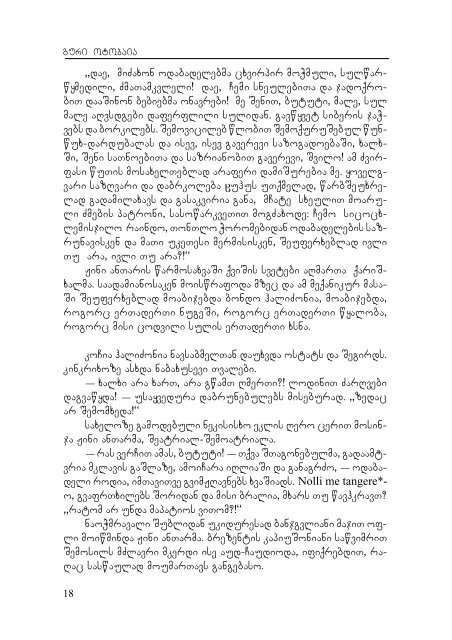 გური ოტობაია
„დაე, მიძახონ ოდაბადელებმა ცხვირპირ მოჭმული, სულწარ-
წყმედილი, ძმათამკვლელი! დაე, ჩემი სნეულებითა და ჯადოქრო-
ბით დააშინონ ბებიებმა ონავრები! მე შენით, ბუტუტი, მალე, სულ
მალე აღვსდგები დაფერფლილი სულიდან. გავწყვეტ სიბერის ჯაჭ-
ვებს და ბორკილებს. შემოვიცილებ წლობით შემოქურუშებულ წუნ-
წუხ-დარდუბალას და ისევ, ისევ გავერევი საზოგადოებაში, ხალხ-
ში, შენი სათნოებითა და საზრიანობით გავერევი, შვილო! ამ ძვირ-
ფასი წუთის მოსახელთებლად არაფერი დამიშურებია მე. ყოველგ-
ვარი საზღვარი და დაბრკოლება ცუჰუს უთქმელად, წარბშეუხრე-
ლად გადამილახავს და გასაკვირია განა, მჩატე სხეულით მოარუ-
ლი ძმების პატრონი, სასოწარკვეთით მოგძახოდე: ჩემო სიცოცხ-
ლემისჯილო რაინდო, თონთლო ჭორომებიდან ოდაბადელების საზ-
რუნავისკენ და მათი უკეთესი მერმისისკენ, შეუფერხებლად ივლი
თუ არა, ივლი თუ არა?!“
ჟინი ანთარის წარმოსახვაში ქვიშის სვეტები აღმართა ქარიშ-
ხალმა. საადამიანოსაკენ მოისწრაფოდა მზეც და ამ მექანიკურ მასა-
ში შეუფერხებლად მოაბიჯებდა ბონდო ჰალიძონია, მოაბიჯებდა,
როგორც ერთადერთი ნუგეში, როგორც ერთადერთი წყალობა,
როგორც მისი ცოდვილი სულის ერთადერთი ხსნა.
კოჩია ჰალიძონია ნავსაბმელთან დაუხვდა ოსტატს და შეგირდს.
კინკრიხოზე ასხდა ნაბახუსევი თვალები.
— ხალხი არ ხართ, არა გწამთ ღმერთი?! ლოდინით ძარღვები
დაგვაწყდა! — უსაყვედურა დაბრუნებულებს მისებურად. „ზედაც
არ შემომხედა!“
სახელოზე გამოდებული ნეკისისხო ეკლის ღერო ცერით მოსინ-
ჯა ჟინი ანთარმა, შეატრიალ-შემოატრიალა.
— რას ვერჩით ამას, ბუტუტი! — თქვა შთაგონებულმა, გადაამტ-
ვრია მკლავის გაშლაზე, ამოიჩარა იღლიაში და განაგრძო, — ოდაბა-
დელი როდია, იმთავითვე გვიმჟღავნებს ხვაშიადს. Nolli me tangere*-
ო, გვაფრთხილებს შორიდან და მისი ბრალია, მხარს თუ წავჰკრავთ?
„რატომ არ უნდა მაპატიოს ვითომ?!“
ნაოჭმრავალი შუბლიდან უკიდურესად ბანჯგვლიანი მაჯით ოფ-
ლი მოიწმინდა ჟინი ანთარმა. ბრეზენტის კაპიუშონიანი საწვიმრით
შემოსილს მძლავრი მკერდი ისე აუდ-ჩაუდიოდა, იფიქრებდით, რა-
ღაც სასწაულად მოუმართავს განგებასო.
18